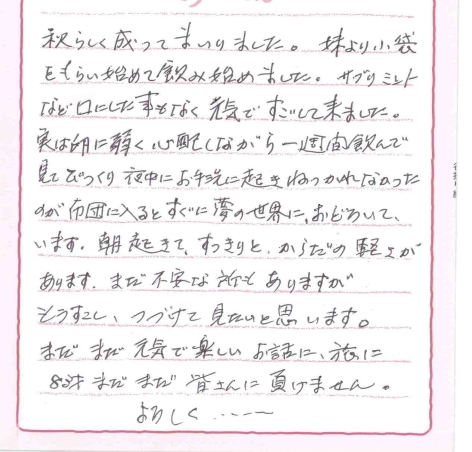 秋らしく成ってまいりました。妹より小袋
をもらい始めて飲み始めました。サプリミント
など口にした事もなく元気ですごして来ました。
実は胃に弱く心配しながら一週間飲んで
見てびっくり夜中にお手洗に起きねつかれなかった
のが布団に入るとすぐに夢の世界に、おどろいて、
います。朝起きて、すっきりと、からだの軽さが
あります。まだ不安な所もありますが
もうすこし、つづけて見たいと思います。
まだまだ元気で楽しいお話に、旅に
8才まだまだ皆さんに負けません。
よろしく・・・・・ー